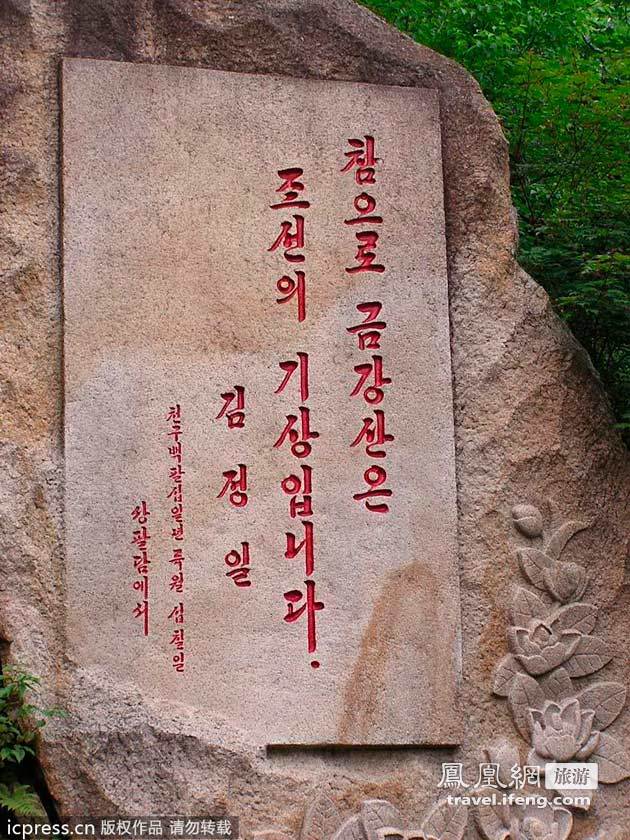 참으로 금강산은
조선의 기상입니다.
김정일
천구백팔십일년 륙월 십칠일
상팔담에서
鳳凰網 旅游
travel.ifeng.com
icpress.cn 版权作品 请勿转载